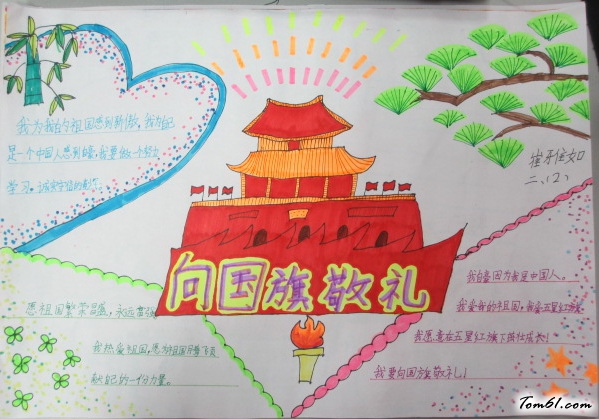 我为我的祖国感到骄傲,我为自己
是一个中国人感到自豪,我要做一个努力
学习,诚实守信的
二、(2)
向国旗敬礼
愿祖国繁荣昌盛,永远富强
我热爱祖国,愿为祖国
献自己的一份力量。
我自豪因为我是中国人。
我爱我的祖国,我爱五星红旗
我愿意在五星红旗下茁壮成长!
我要向国旗敬礼!
Tom61.com